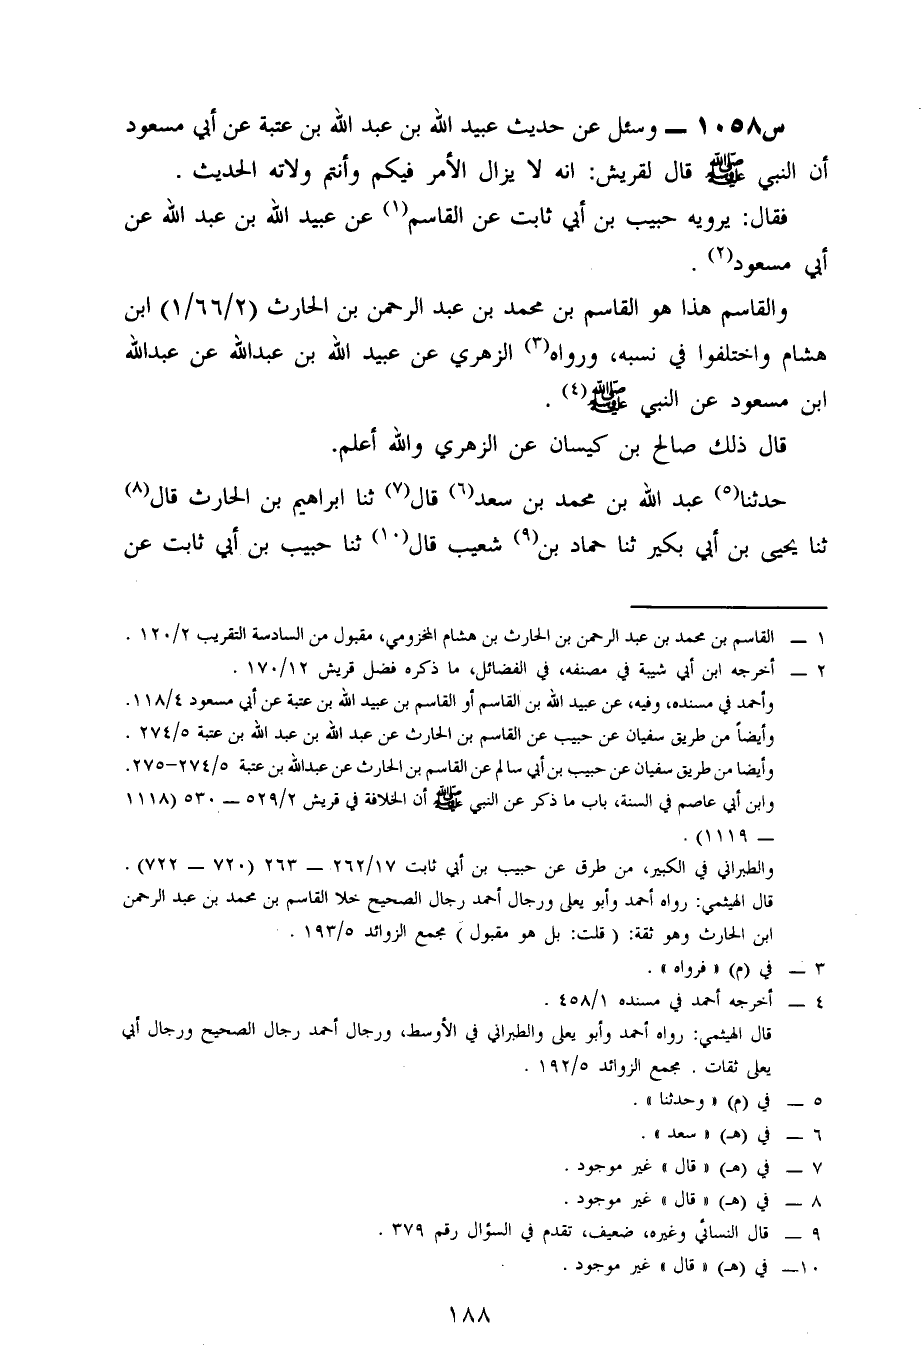 س١٠٥٨ ــ وسئل عن حديث عبيد الله بن عبد الله بن عتبة عن أبي مسعود
أن النبي ﷺ قال لقريش: انه لا يزال الأمر فيكم وأنتم ولاته الحديث .
فقال: يرويه حبيب بن أبي ثابت عن القاسم(١) عن عبيد الله بن عبد الله عن
أبي مسعود(٢) .
والقاسم هذا هو القاسم بن محمد بن عبد الرحمن بن الحارث (١/٦٦/٢) ابن
هشام واختلفوا في نسبه، ورواه(٣) الزهري عن عبيد الله بن عبدالله عن عبدالله
ابن مسعود عن النبي ﷺ(٤) .
قال ذلك صالح بن كيسان عن الزهري والله أعلم.
حدثنا(٥) عبد الله بن محمد بن سعد(٦) قال(٧) ثنا ابراهيم بن الحارث قال(٨)
ثنا يحيى بن أبي بكير ثنا حماد بن(٩) شعيب قال(١٠) ثنا حبيب بن أبي ثابت عن
١ ــ القاسم بن محمد بن عبد الرحمن بن الحارث بن هشام المخزومي، مقبول من السادسة التقريب ١٢٠/٢ .
٢ ــ أخرجه ابن أبي شيبة في مصنفه، في الفضائل، ما ذكره فضل قريش ١٧٠/١٢ .
وأحمد في مسنده، وفيه، عن عبيد الله بن القاسم أو القاسم بن عبيد الله بن عتبة عن أبي مسعود ١١٨/٤.
وأيضاً من طريق سفيان عن حبيب عن القاسم بن الحارث عن عبد الله بن عبد الله بن عتبة ٢٧٤/٥ .
وأيضا من طريق سفيان عن حبيب بن أبي سالم عن القاسم بن الحارث عن عبدالله بن عتبة ٢٧٤/٥–٢٧٥.
وابن أبي عاصم في السنة، باب ما ذكر عن النبي ﷺ أن الخلافة في قريش ٥٢٩/٢ ــ ٥٣٠ (١١١٨
ــ ١١١٩) .
والطبراني في الكبير، من طرق عن حبيب بن أبي ثابت ٢٦٢/١٧ ــ ٢٦٣ (٧٢٠ ــ ٧٢٢) .
قال الهيثمي: رواه أحمد وأبو يعلى ورجال أحمد رجال الصحيح خلا القاسم بن محمد بن عبد الرحمن
ابن الحارث وهو ثقة: ( قلت: بل هو مقبول ) مجمع الزوائد ١٩٣/٥ .
٣ ــ في (م) « فرواه » .
٤ ــ أخرجه أحمد في مسنده ٤٥٨/١ .
قال الهيثمي: رواه أحمد وأبو يعلى والطبراني في الأوسط، ورجال أحمد رجال الصحيح ورجال أبي
يعلى ثقات . مجمع الزوائد ١٩٢/٥ .
٥ ــ في (م) « وحدثنا » .
٦ ــ في (هـ) « سعد » .
٧ ــ في (هـ) « قال » غير موجود .
٨ ــ في (هـ) « قال » غير موجود .
٩ ــ قال النسائي وغيره، ضعيف، تقدم في السؤال رقم ٣٧٩ .
١٠ــ في (هـ) « قال » غير موجود .
١٨٨